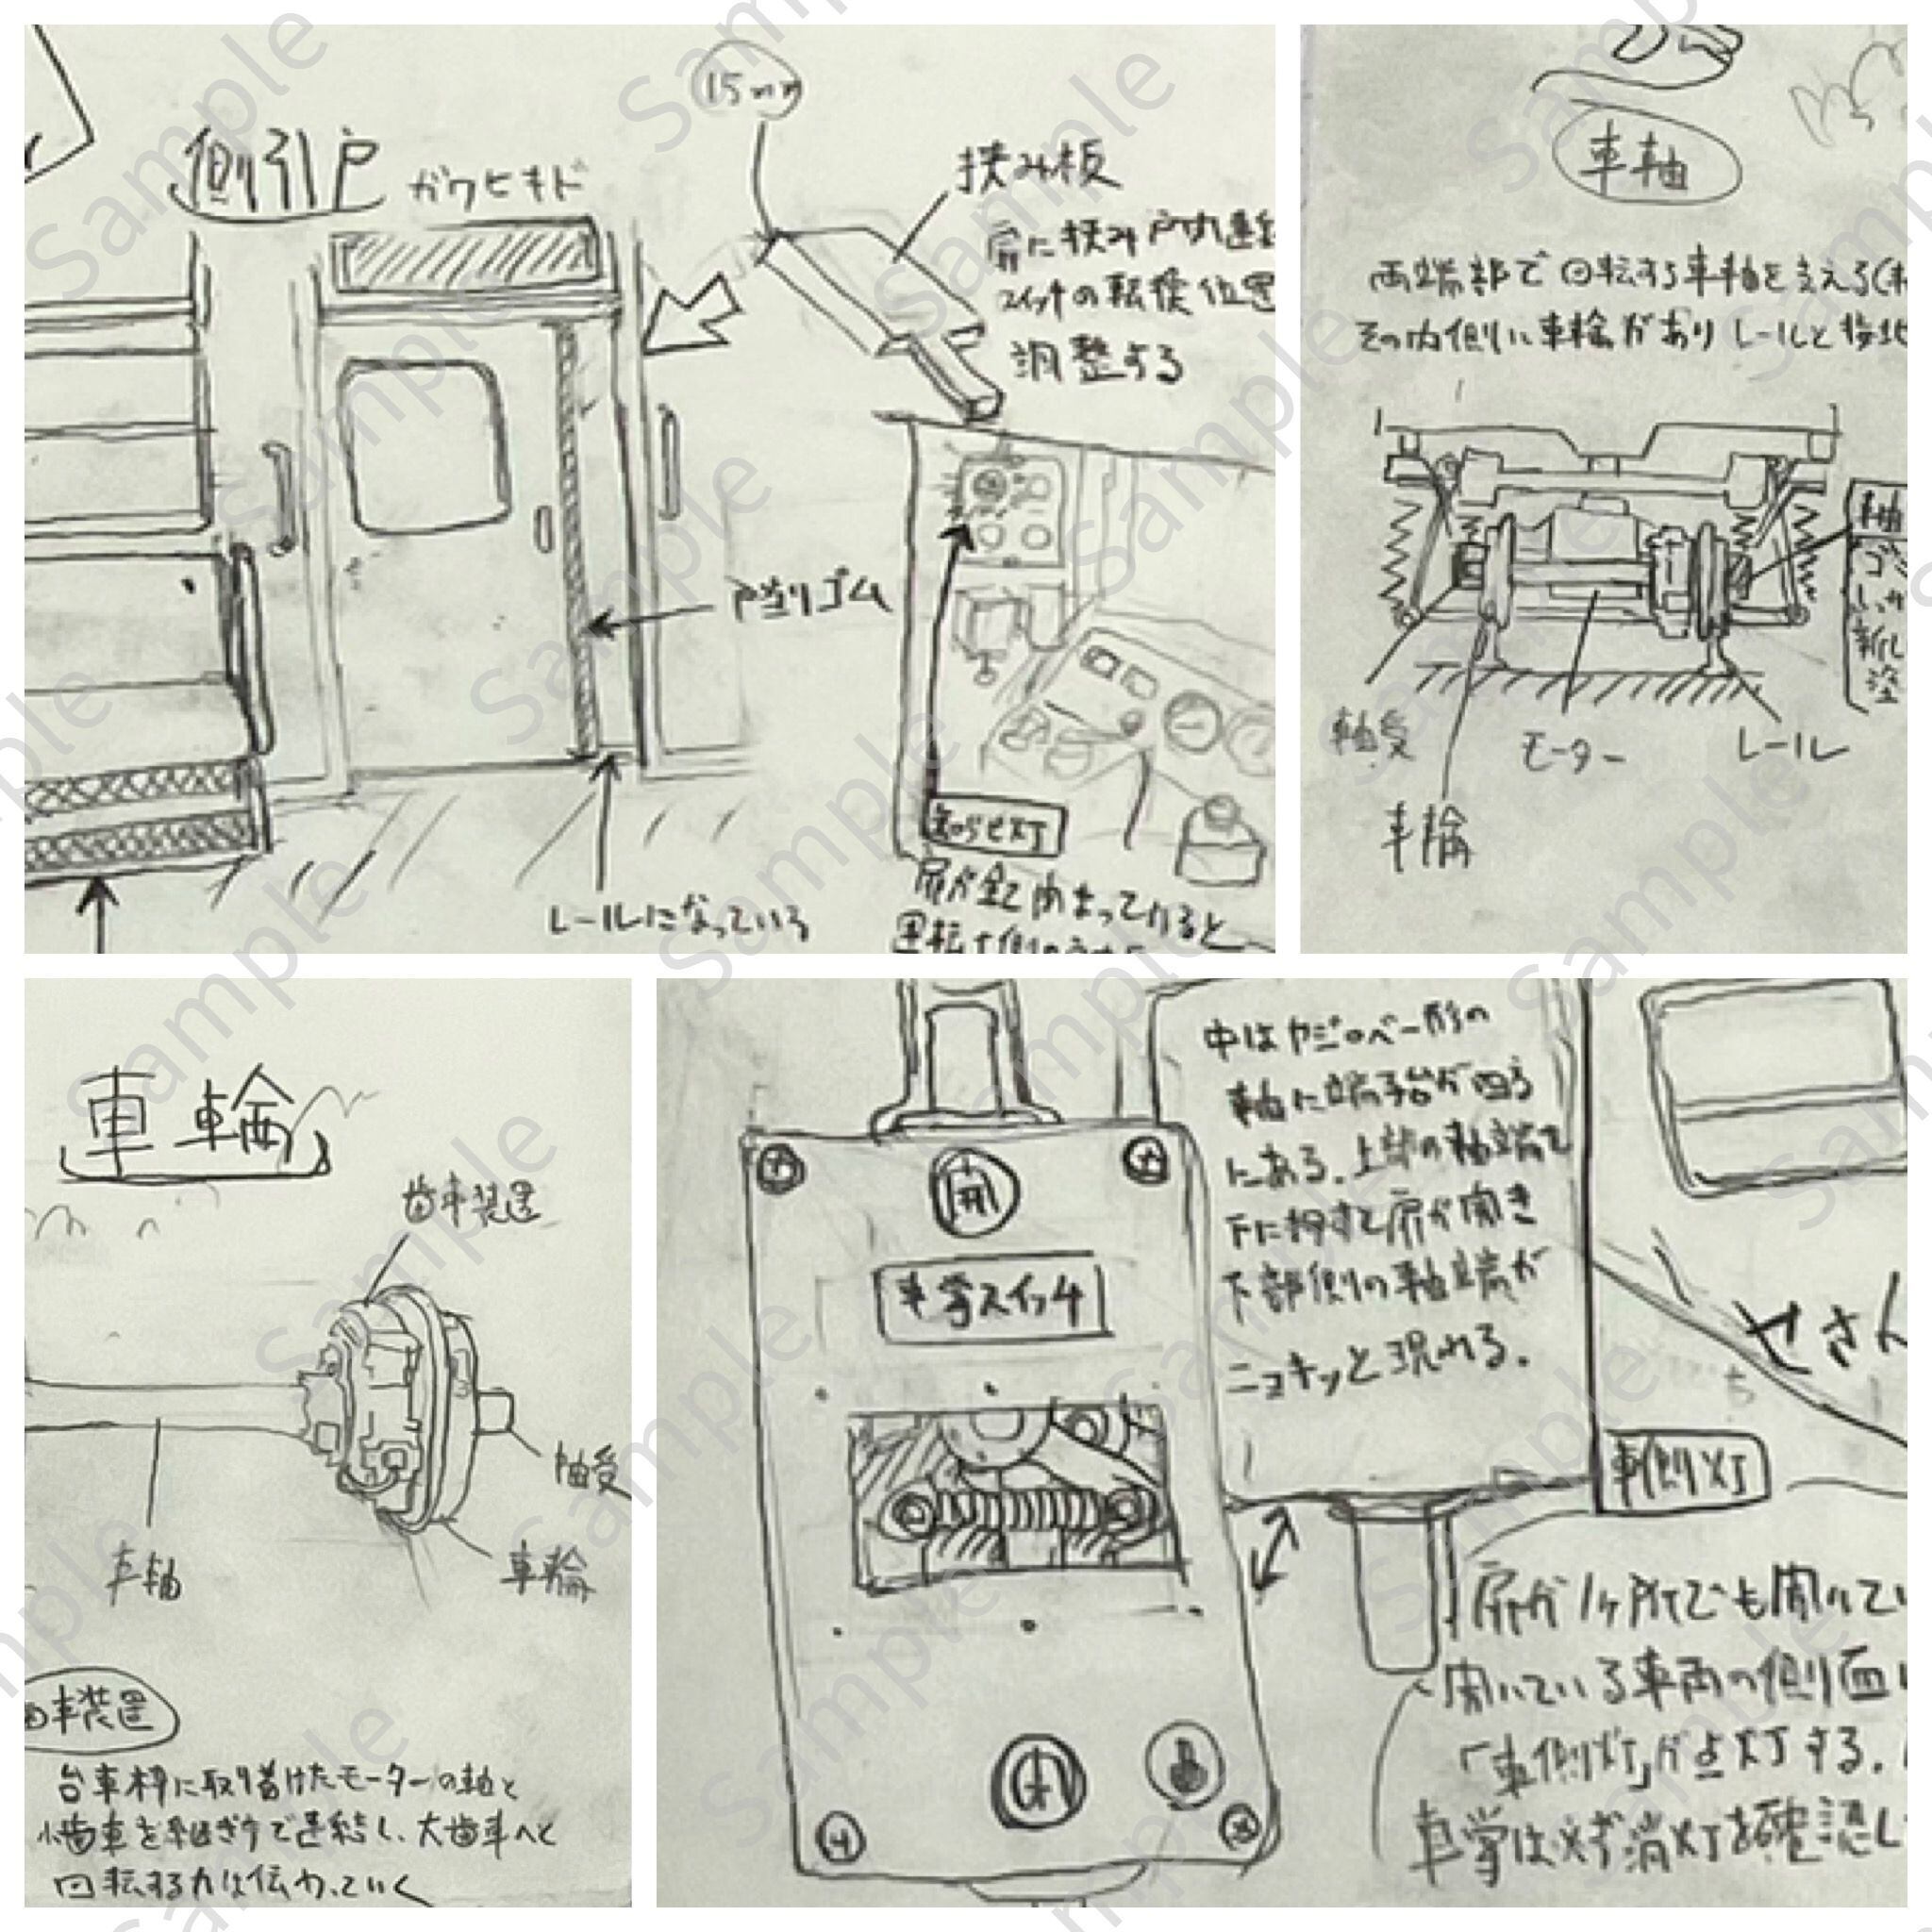 側引戸 ガワヒキド
15mm
挟み板
扉に挟み戸閉連
スイッチの転換位置
調整する
戸当りゴム
レールになっている
知らせ灯
扉が全て閉まっていると
車軸
両端部で回転する車軸を支える
その内側に車輪がありレールと接
軸
ゴ
新し
塗
軸受
モーター
レール
車輪
車輪
歯車装置
軸受
車軸
車輪
歯車装置
台車枠に取り着けたモーターの軸と
小歯車を継ぎ手で連結し、大歯車へと
回転する力は伝わっていく
開
車掌スイッチ
中はヤジロベー形の
軸に端子台が四る
にある。上部の軸端を
下に押すと扉が開き
下部側の軸端が
ニョキッと現れる。
せさん
車側灯
扉が1ヶ所でも開いてい
開いている車両の側面
「車側灯」が点灯する。
車掌は必ず消灯を確認し
Sample